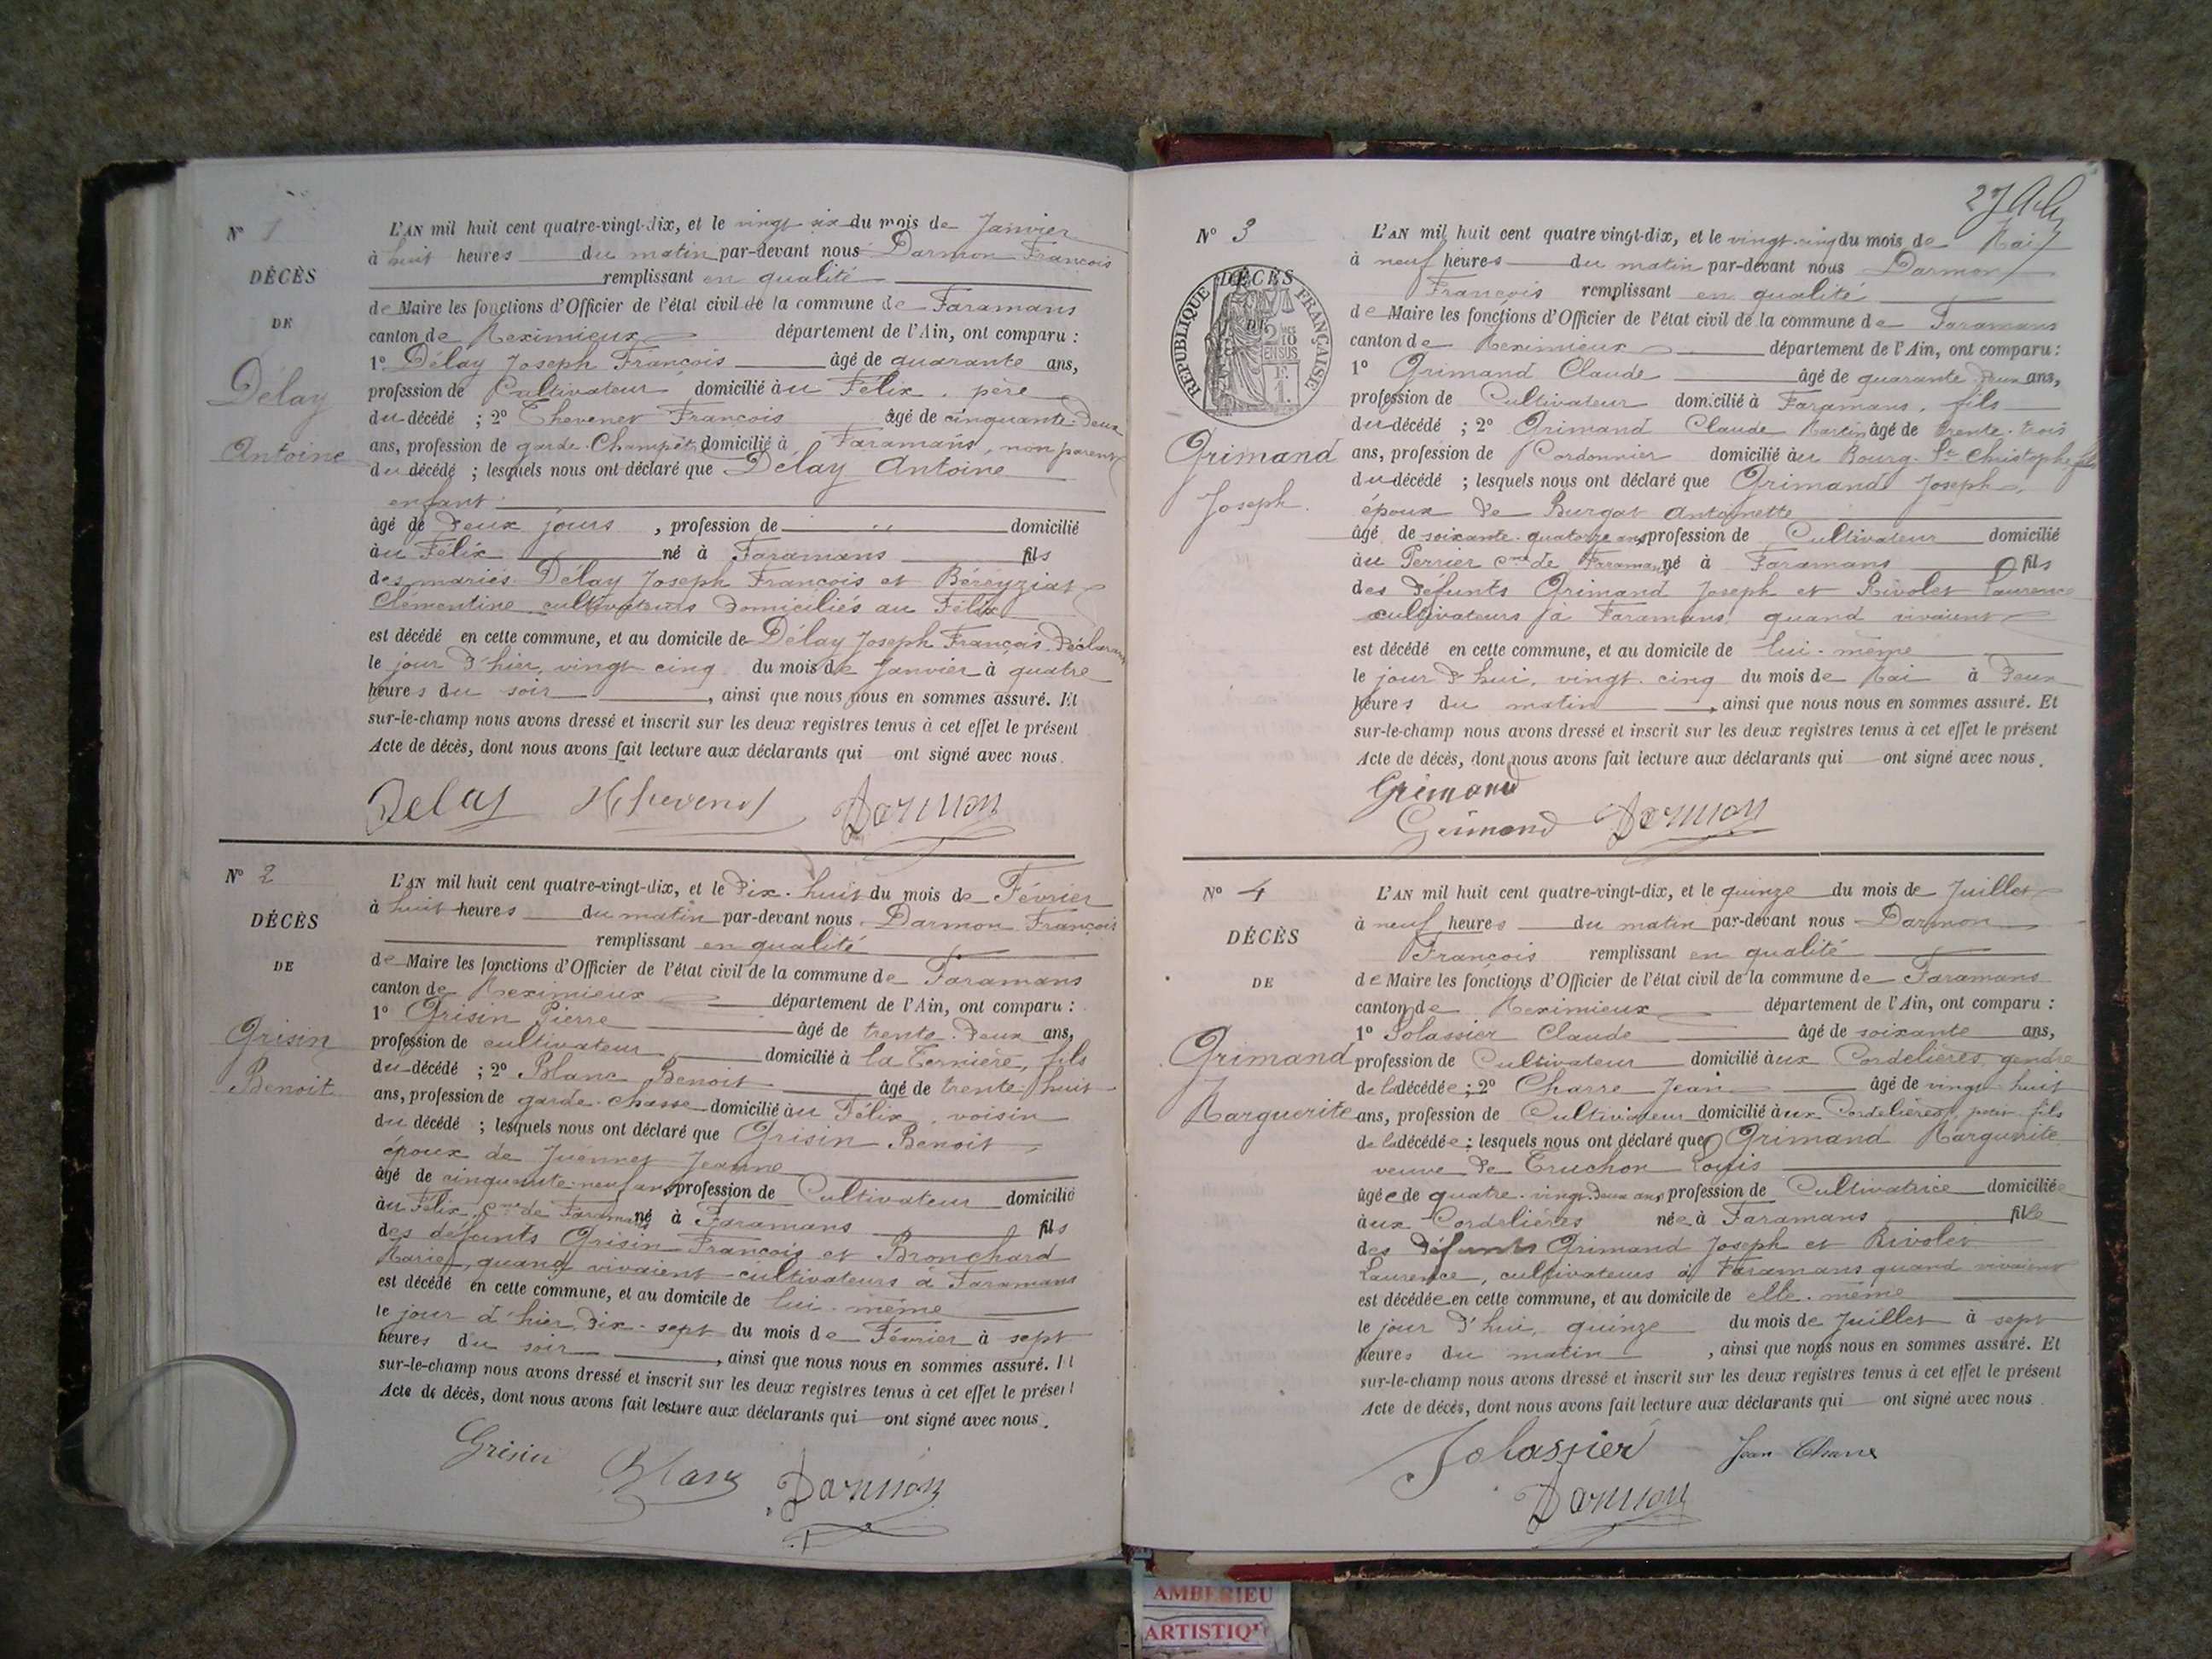 N° 1
DÉCÈS
DE
Délay
Antoine
L'AN mil huit cent quatre-vingt-dix, et le vingt six du mois de Janvier
à huit heures du matin par-devant nous Darmon François
remplissant en qualité
de Maire les fonctions d'Officier de l'état civil de la commune de Faramans
canton de Meximieux département de l'Ain, ont comparu :
1° Délay Joseph François âgé de quarante ans,
profession de Cultivateur domicilié au Félix, père
du décédé ; 2° Thevenet François âgé de cinquante-deux
ans, profession de garde-Champêt. domicilié à Faramans, non parent
du décédé ; lesquels nous ont déclaré que Délay Antoine
enfant
âgé de deux jours , profession de " domicilié
au Félix né à Faramans fils
des mariés Délay Joseph François et Béréyziat
Clémentine cultivateurs domiciliés au Félix
est décédé en cette commune, et au domicile de Délay Joseph François déclarant
le jour d'hier, vingt cinq du mois de Janvier à quatre
heures du soir , ainsi que nous nous en sommes assuré. Et
sur-le-champ nous avons dressé et inscrit sur les deux registres tenus à cet effet le présent
Acte de décès, dont nous avons fait lecture aux déclarants qui ont signé avec nous.
Delay Thevenet Darmon
N° 2
DÉCÈS
DE
Grisin
Benoit
L'AN mil huit cent quatre-vingt-dix, et le dix-huit du mois de Février
à huit heures du matin par-devant nous Darmon François
remplissant en qualité
de Maire les fonctions d'Officier de l'état civil de la commune de Faramans
canton de Meximieux département de l'Ain, ont comparu :
1° Grisin Pierre âgé de trente-deux ans,
profession de cultivateur domicilié à la Ternière, fils
du décédé ; 2° Blanc Benoit âgé de trente huit
ans, profession de garde-chasse domicilié au Félix, voisin
du décédé ; lesquels nous ont déclaré que Grisin Benoit
époux de Juennet Jeanne
âgé de cinquante-neuf ans, profession de Cultivateur domicilié
au Félix, cne de Faramans né à Faramans fils
des défunts Grisin François et Bronchard
Marie, quand vivaient cultivateurs à Faramans
est décédé en cette commune, et au domicile de lui-même
le jour d'hier, dix-sept du mois de Février à sept
heures du soir , ainsi que nous nous en sommes assuré. Et
sur-le-champ nous avons dressé et inscrit sur les deux registres tenus à cet effet le présent
Acte de décès, dont nous avons fait lecture aux déclarants qui ont signé avec nous.
Grisin Blanc Darmon
27
N° 3
RÉPUBLIQUE FRANÇAISE
2/10 EN SUS
F. 1.
DÉCÈS
DE
Grimand
Joseph.
L'AN mil huit cent quatre vingt-dix, et le vingt-cinq du mois de Mai
à neuf heures du matin par-devant nous Darmon
François remplissant en qualité
de Maire les fonctions d'Officier de l'état civil de la commune de Faramans
canton de Meximieux département de l'Ain, ont comparu :
1° Grimand Claude âgé de quarante deux ans,
profession de Cultivateur domicilié à Faramans, fils
du décédé ; 2° Grimand Claude Martin âgé de trente-trois
ans, profession de Cordonnier domicilié au Bourg-St Christophe fils
du décédé ; lesquels nous ont déclaré que Grimand Joseph,
époux de Burgat Antoinette
âgé de soixante-quatorze ans profession de Cultivateur domicilié
au Perrier cne de Faramans né à Faramans fils
des défunts Grimand Joseph et Rivolet Laurence
cultivateurs à Faramans quand vivaient
est décédé en cette commune, et au domicile de lui-même
le jour d'hui, vingt-cinq du mois de Mai à deux
heures du matin , ainsi que nous nous en sommes assuré. Et
sur-le-champ nous avons dressé et inscrit sur les deux registres tenus à cet effet le présent
Acte de décès, dont nous avons fait lecture aux déclarants qui ont signé avec nous.
Grimand
Grimand Darmon
N° 4
DÉCÈS
DE
Grimand
Marguerite
L'AN mil huit cent quatre-vingt-dix, et le quinze du mois de Juillet
à neuf heures du matin par-devant nous Darmon
François remplissant en qualité
de Maire les fonctions d'Officier de l'état civil de la commune de Faramans
canton de Meximieux département de l'Ain, ont comparu :
1° Solassier Claude âgé de soixante ans,
profession de Cultivateur domicilié aux Cordelières, gendre
de la décédée ; 2° Charre Jean âgé de vingt huit
ans, profession de Cultivateur domicilié aux Cordelières, petit fils
de la décédée ; lesquels nous ont déclaré que Grimand Marguerite
veuve de Truchon Louis
âgée de quatre-vingt-deux ans, profession de Cultivatrice domiciliée
aux Cordelières née à Faramans fille
des défunts Grimand Joseph et Rivolet
Laurence, cultivateurs à Faramans quand vivaient
est décédée en cette commune, et au domicile de elle-même
le jour d'hui, quinze du mois de Juillet à sept
heures du matin , ainsi que nous nous en sommes assuré. Et
sur-le-champ nous avons dressé et inscrit sur les deux registres tenus à cet effet le présent
Acte de décès, dont nous avons fait lecture aux déclarants qui ont signé avec nous
Solassier Jean Charre
Darmon
AMBERIEU
ARTISTIQU